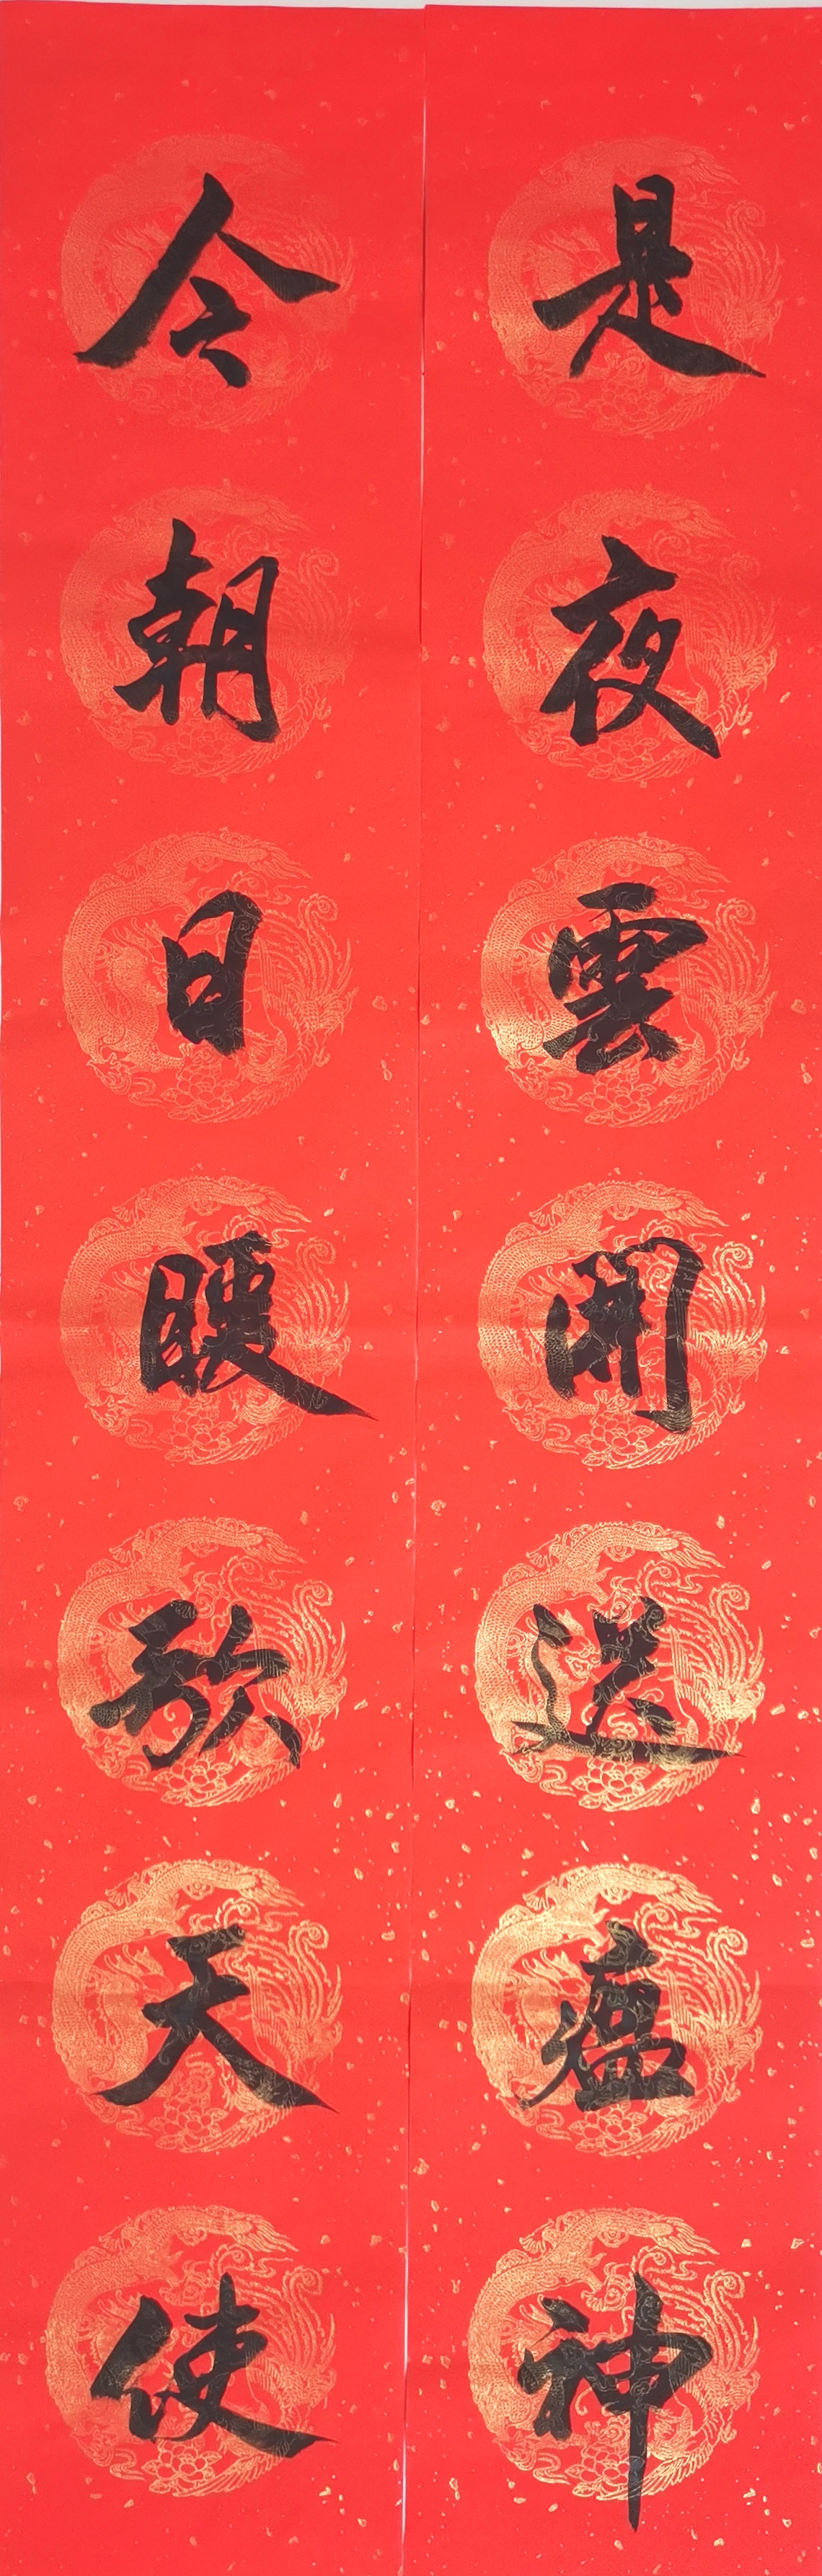 是夜雲開送瘟神
今朝日暖歌天使